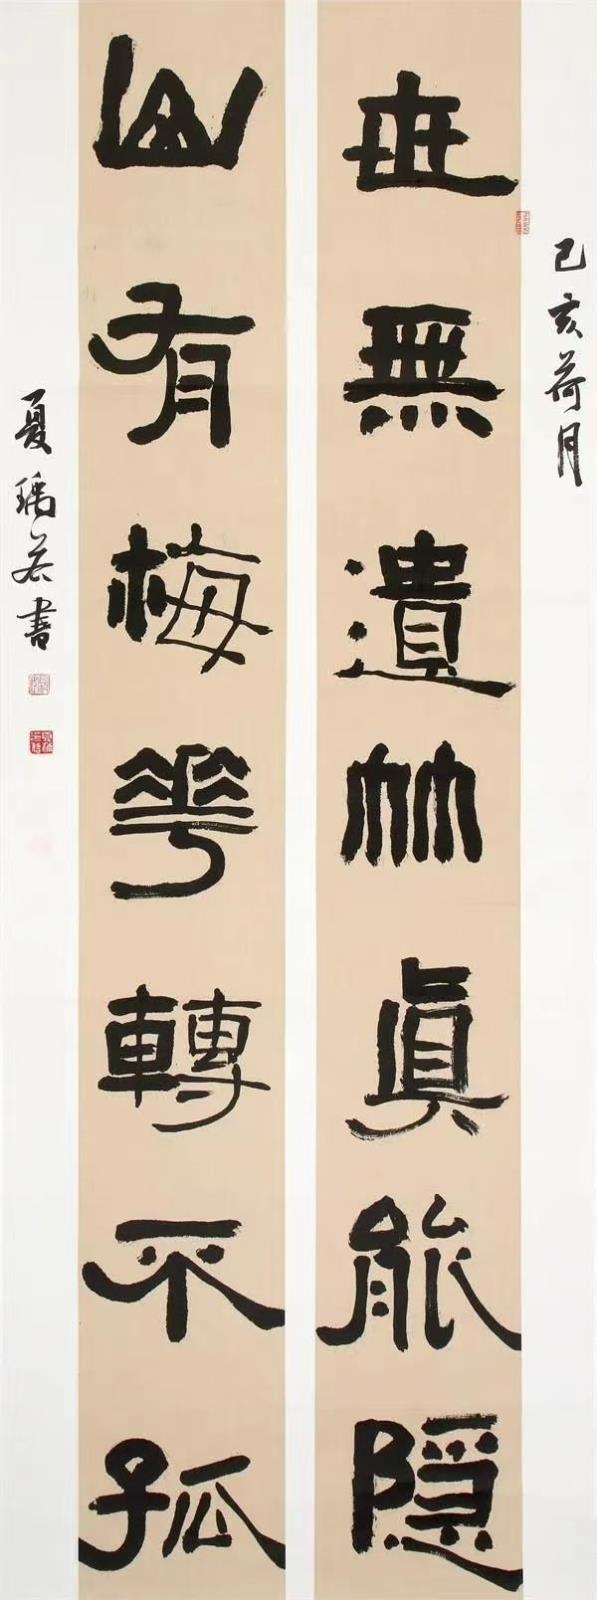 己亥荷月
世無遺艸眞能隱
山有梅花轉不孤
夏瑀若書